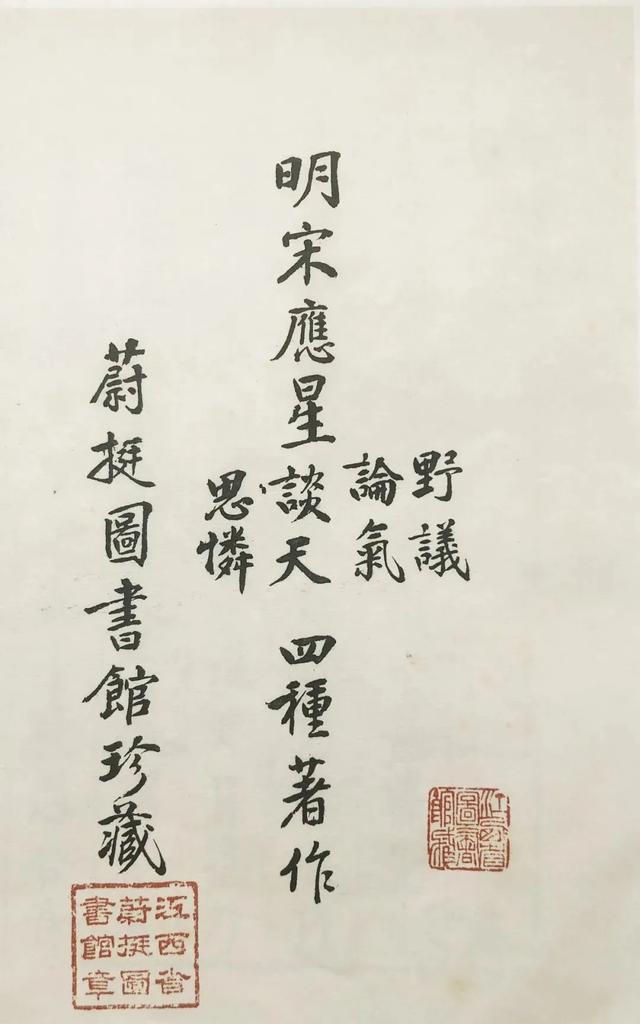 野議
論氣
明宋應星談天 四種著作
思憐
蔚挺圖書館珍藏
江西省
蔚挺圖
書館章
江西省
圖書
館藏